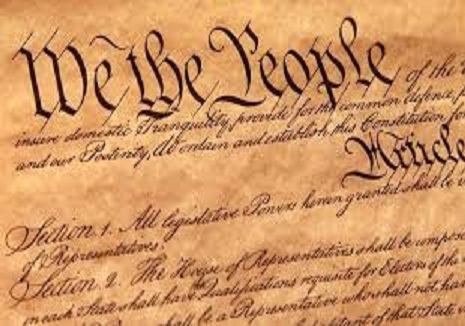 We the People of the
insure domestic Tranquility, provide for the common defence,
and our Posterity, do ordain and establish this Constitution for
Article
Section 1. All legislative Powers herein granted shall be
of Representatives.
Section 2. The House of Representatives shall be compose
in each State shall have the Qualifications requisite for Electors of the
shall be a Representative who shall not have
of that State